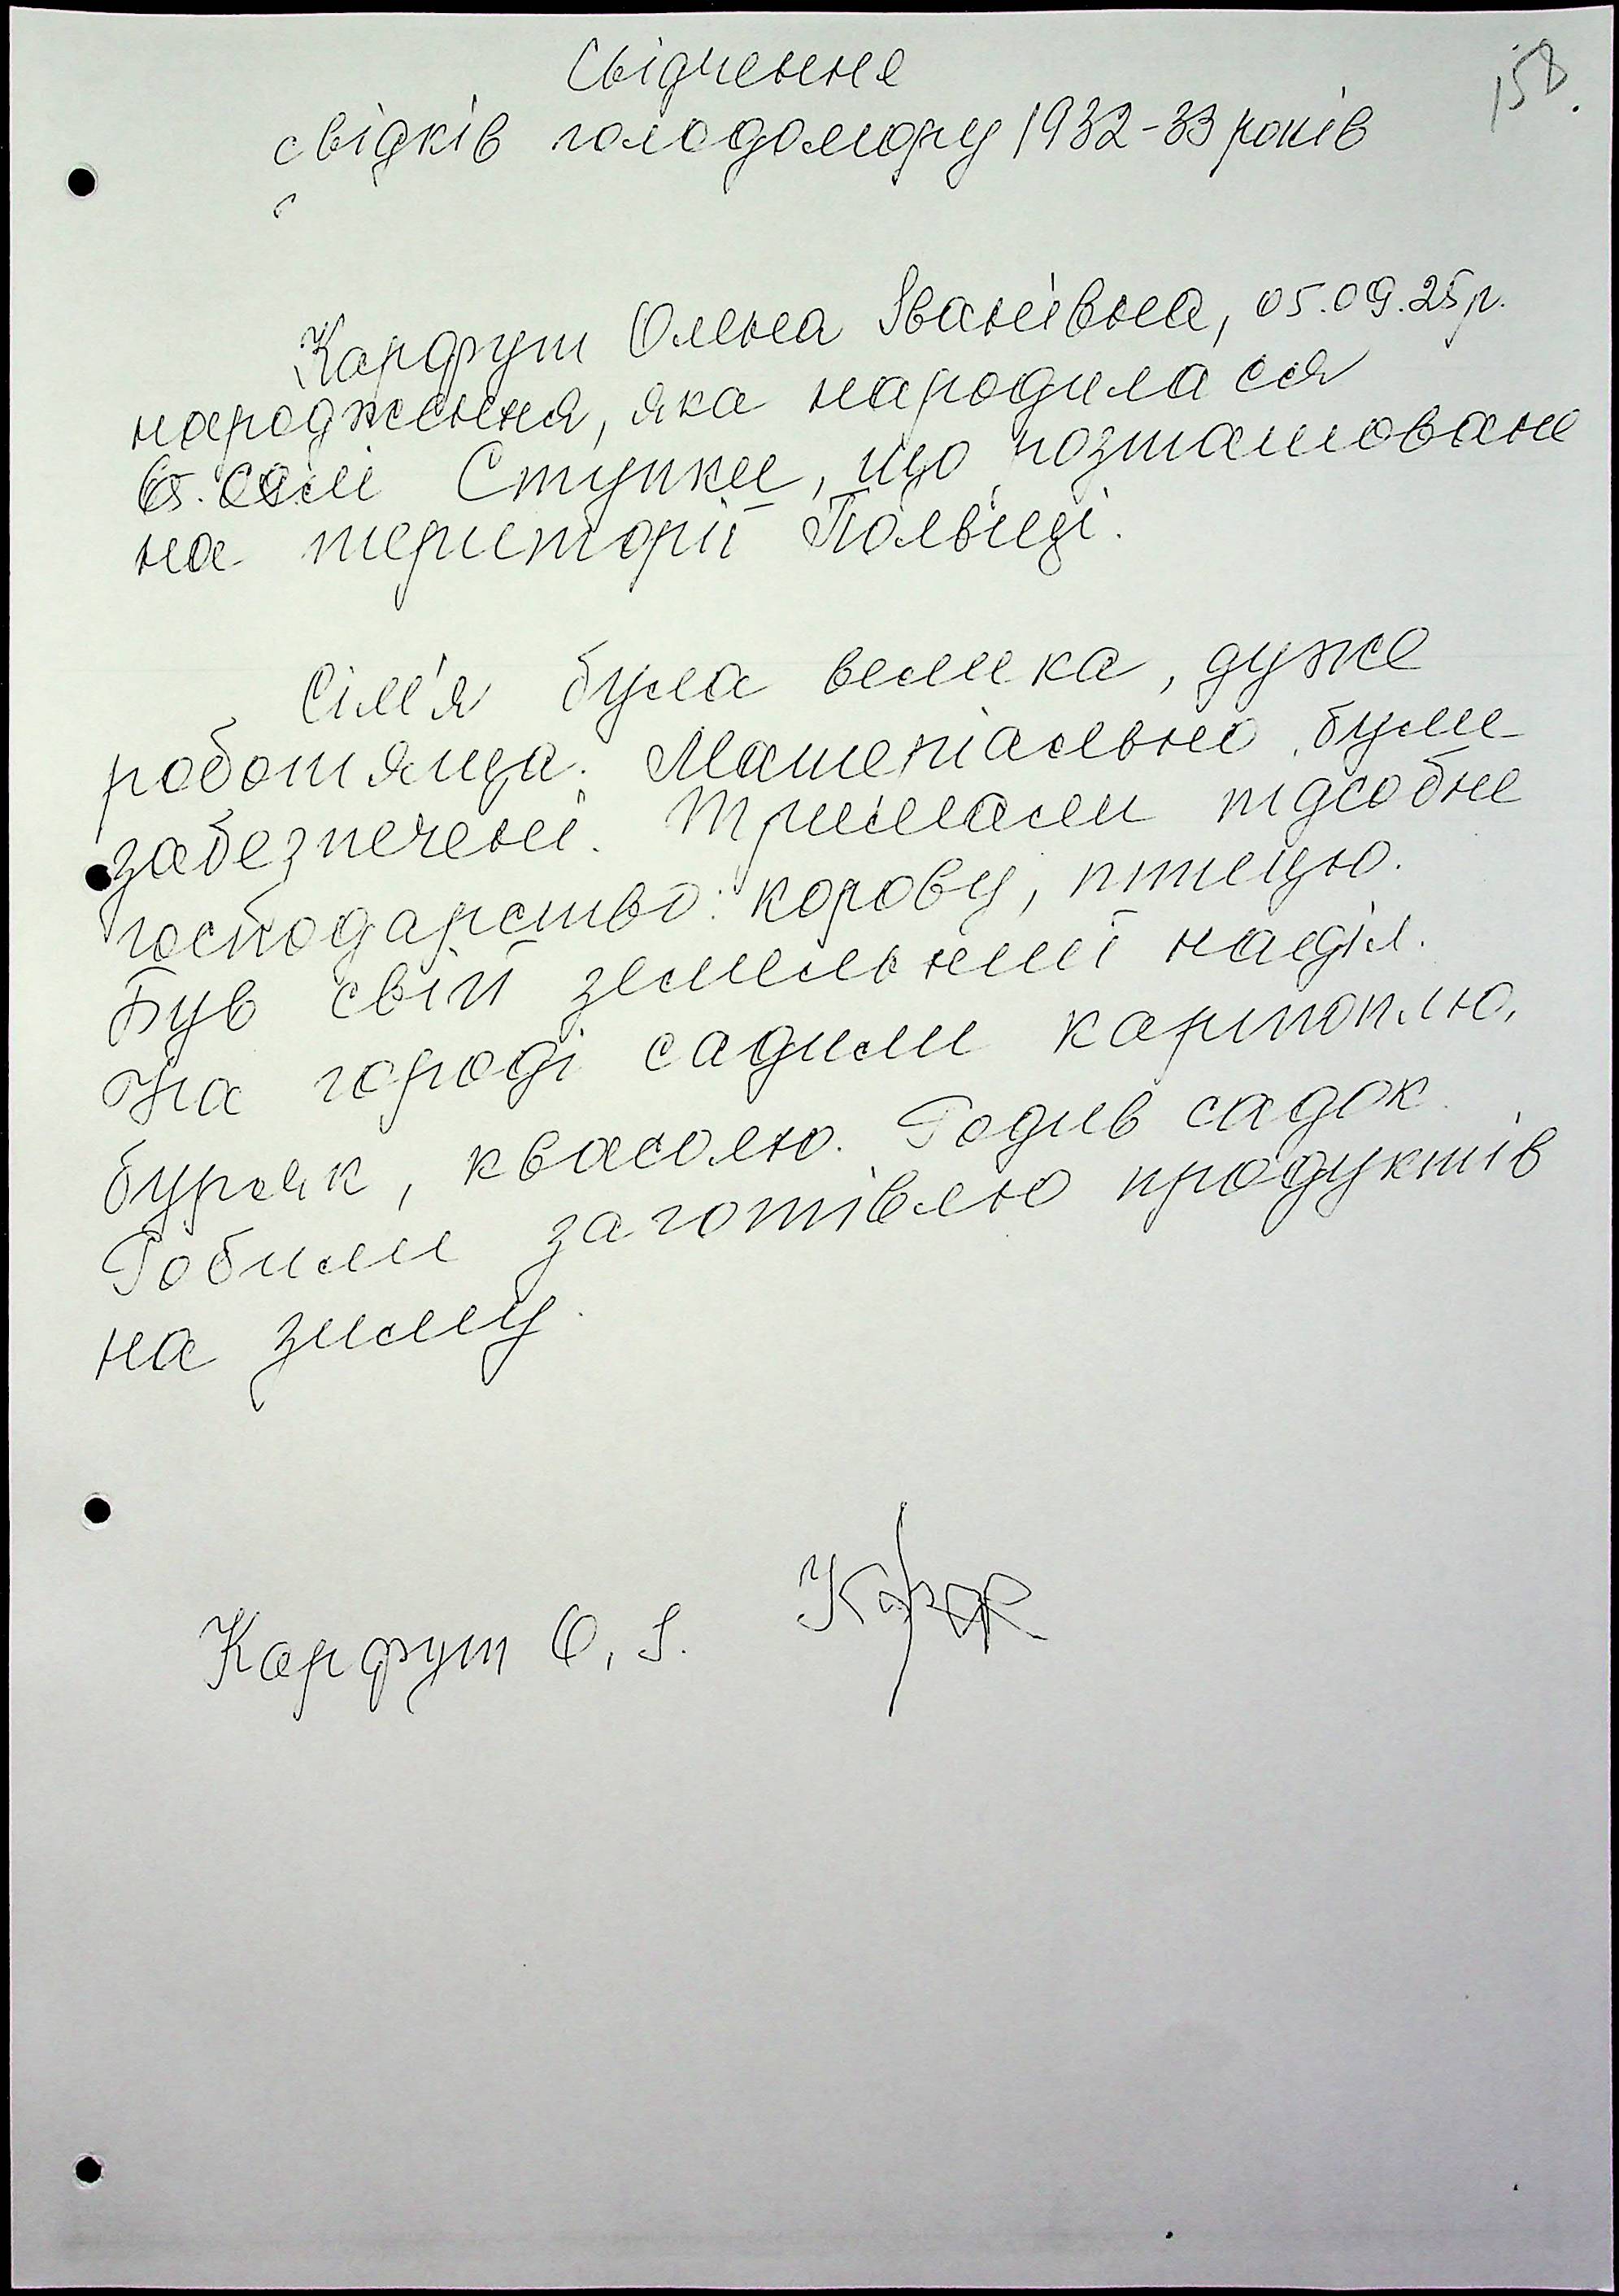 Свідчення
158.
свідків голодомору 1932-33 років
Карфут Олена Іванівна, 05.09.25 р.
народження, яка народилася
в селі Ступки, що розташоване
на території Польщі.
Сім'я була велика, дуже
роботяща. Матеріально були
забезпечені. Тримали підсобне
господарство: корову, птицю.
Був свій земельний наділ.
На городі садили картоплю,
буряк, квасолю. Родив садок.
Робили заготівлю продуктів
на зиму.
Карфут О. І.